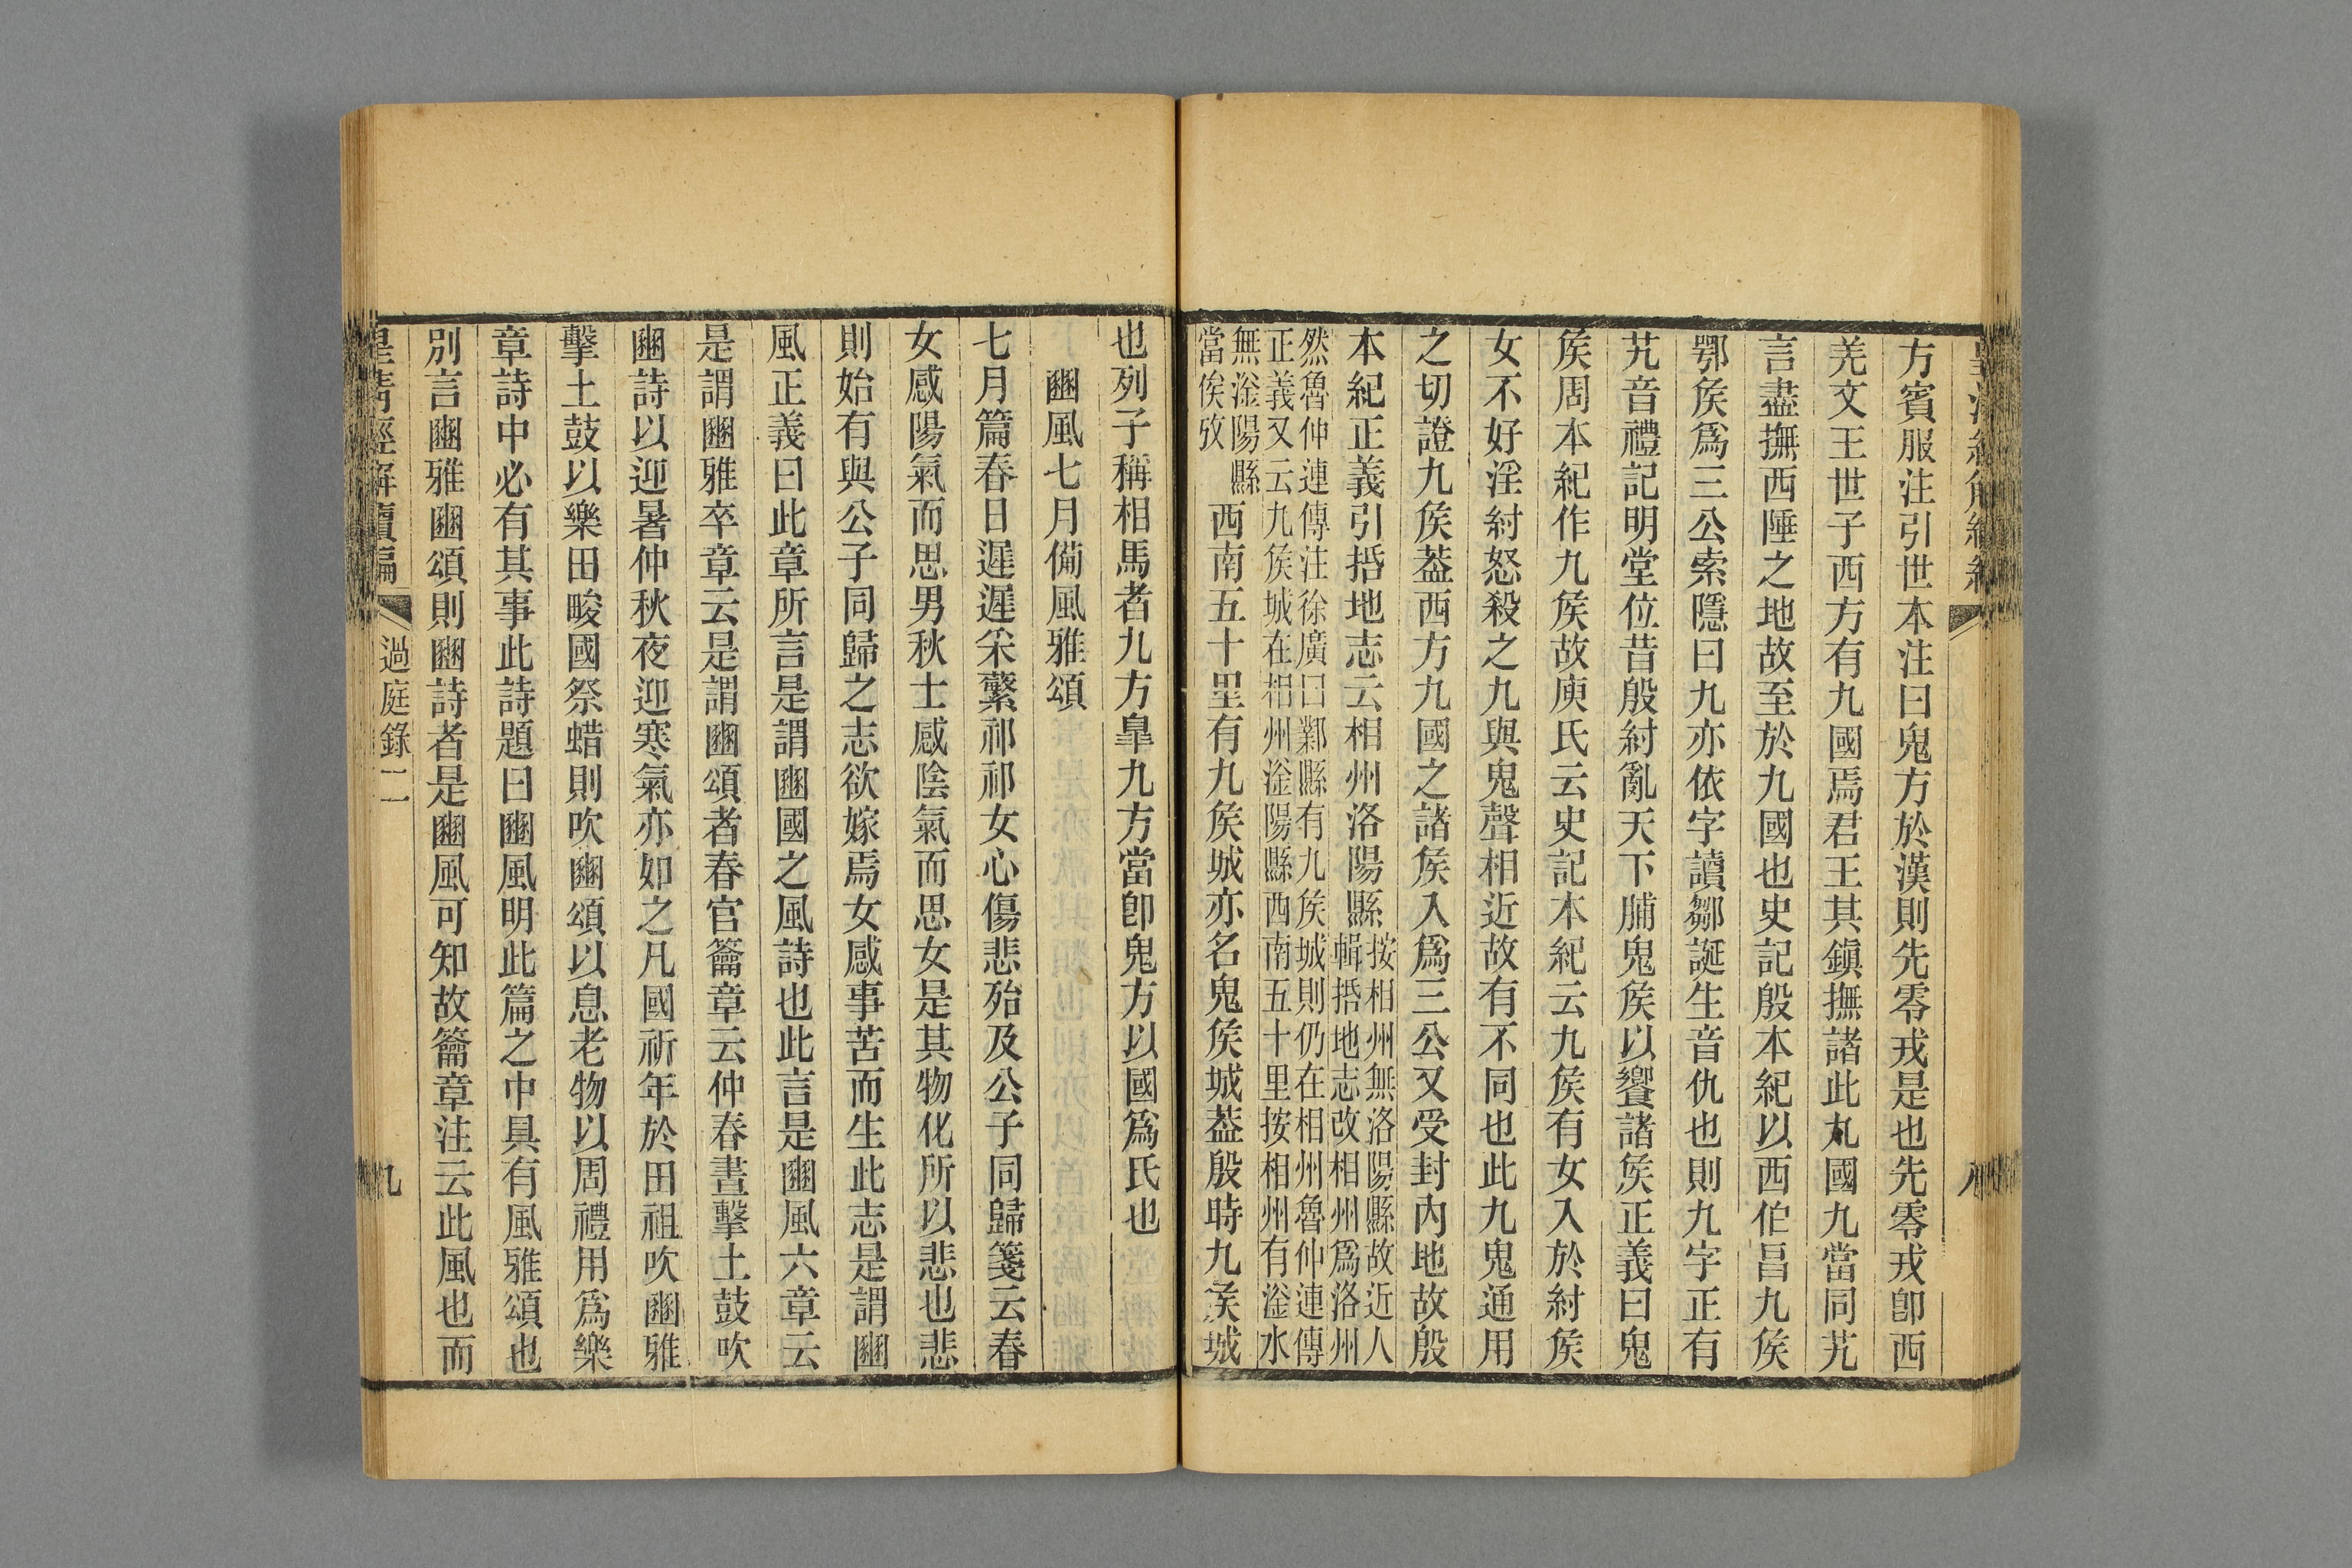 方賓服注引世本注曰鬼方於漢則先零戎是也先零戎卽西
羌文王世子西方有九國焉君王其鎭撫諸此九國九當同艽
言盡撫西陲之地故至於九國也史記殷本紀以西伯昌九矦
鄂矦爲三公索隱曰九亦依字讀鄒誕生音仇也則九字正有
艽音禮記明堂位昔殷紂亂天下脯鬼矦以饗諸矦正義曰鬼
矦周本紀作九矦故庾氏云史記本紀云九矦有女入於紂矦
女不好淫紂怒殺之九與鬼聲相近故有不同也此九鬼通用
之切證九矦葢西方九國之諸矦入爲三公又受封內地故殷
本紀正義引括地志云相州洛陽縣
按相州無洛陽縣故近人
輯括地志改相州爲洛州
然魯仲連傳注徐廣曰鄴縣有九矦城則仍在相州魯仲連傳
正義又云九矦城在相州滏陽縣西南五十里按相州有滏水
無滏陽縣
當俟攷
西南五十里有九矦城亦名鬼矦城葢殷時九矦城
也列子稱相馬者九方皐九方當卽鬼方以國爲氏也
豳風七月備風雅頌
七月篇春日遲遲采蘩祁祁女心傷悲殆及公子同歸箋云春
女感陽氣而思男秋士感陰氣而思女是其物化所以悲也悲
則始有與公子同歸之志欲嫁焉女感事苦而生此志是謂豳
風正義曰此章所言是謂豳國之風詩也此言是豳風六章云
是謂豳雅卒章云是謂豳頌者春官籥章云仲春晝擊土鼓吹
豳詩以迎暑仲秋夜迎寒氣亦如之凡國祈年於田祖吹豳雅
擊土鼓以樂田畯國祭蜡則吹豳頌以息老物以周禮用爲樂
章詩中必有其事此詩題曰豳風明此篇之中具有風雅頌也
別言豳雅豳頌則豳詩者是豳風可知故籥章注云此風也而
皇淸經解續編
過庭錄二
九